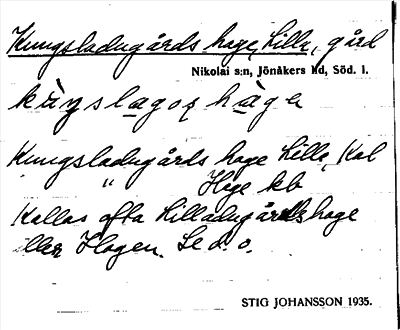 Kungsladugårds hage, Lilla, gård
Nikolai s:n, Jönåkers hd, Söd. l.
Kungsladugårds hage Lilla, Kal
" Hge kb
Kallas ofta Lilladugårdshage
eller Hagen. Se d. o.
STIG JOHANSSON 1935.